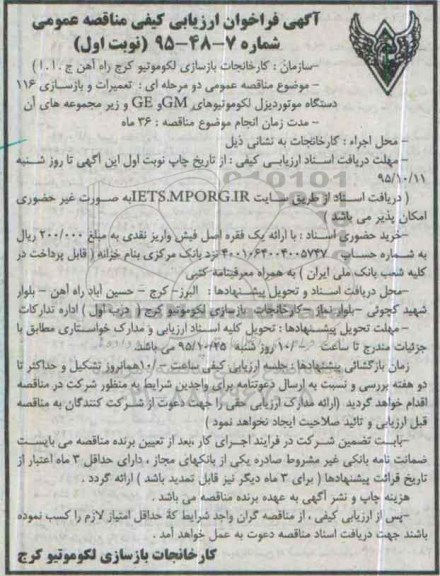 آگهی فراخوان ارزیابی کیفی مناقصه عمومی
شماره ۷-۴۸-۹۵ (نوبت اول)
-سازمان : کارخانجات بازسازی لکوموتیو کرج راه آهن ج.ا.ا)
- موضوع مناقصه عمومی دو مرحله ای : تعمیرات و بازسازی ۱۱۶
دستگاه موتوردیزل لکوموتیوهای GM و GE و زیر مجموعه های آن
- مدت زمان انجام موضوع مناقصه : ۳۶ ماه
- محل اجراء : کارخانجات به نشانی ذیل
- مهلت دریافت اسناد ارزیابی کیفی : از تاریخ چاپ نوبت اول این آگهی تا روز شنبه
۹۵/۱۰/۱۱
( دریافت اسناد از طریق سایت IETS.MPORG.IR به صورت غیر حضوری
امکان پذیر می باشد )
-خرید حضوری اسناد : با ارائه یک فقره اصل فیش واریز نقدی به مبلغ ۲۰۰/۰۰۰ ریال
به شماره حساب ۴۰۰۱۰۶۴۰۰۴۰۰۵۷۴۷ نزد بانک مرکزی بنام خزانه ( قابل پرداخت در
کلیه شعب بانک ملی ایران ) به همراه معرفینامه کتبی
-محل دریافت اسناد و تحویل پیشنهادها : البرز- کرج - حسین آباد راه آهن - بلوار
شهید کچوئی -بلوار نماز -کارخانجات بازسازی لکوموتیو کرج ( درب اول ) اداره تدارکات
- مهلت تحویل پیشنهادها : تحویل کلیه اسناد ارزیابی و مدارک خواستاری مطابق با
جزئیات مندرج تا ساعت ۱۰/۰۰ روز شنبه ۹۵/۱۰/۲۵ می باشد.
زمان بازگشائی پیشنهادها : جلسه ارزیابی کیفی ساعت ۱۰/۰۰ همانروز تشکیل و حداکثر تا
دو هفته بررسی و نسبت به ارسال دعوتنامه برای واجدین شرایط به منظور شرکت در مناقصه
اقدام خواهد گردید (ارائه مدارک ارزیابی حقی را جهت دعوت از شرکت کنندگان به مناقصه
قبل ارزیابی و تائید صلاحیت ایجاد نخواهد نمود )
-بابت تضمین شرکت در فرایند اجرای کار ،بعد از تعیین برنده مناقصه می بایست
ضمانت نامه بانکی غیر مشروط صادره یکی از بانکهای مجاز ، دارای حداقل ۳ ماه اعتبار از
تاریخ قرائت پیشنهادها ( برای ۳ ماه دیگر نیز قابل تمدید باشد ) ارائه گردد .
هزینه چاپ و نشر آگهی به عهده برنده مناقصه می باشد .
-پس از ارزیابی کیفی ، از مناقصه گران واجد شرایط که حداقل امتیاز لازم را کسب نموده
باشند جهت دریافت اسناد مناقصه دعوت به عمل خواهد آمد .
کارخانجات بازسازی لکوموتیو کرج